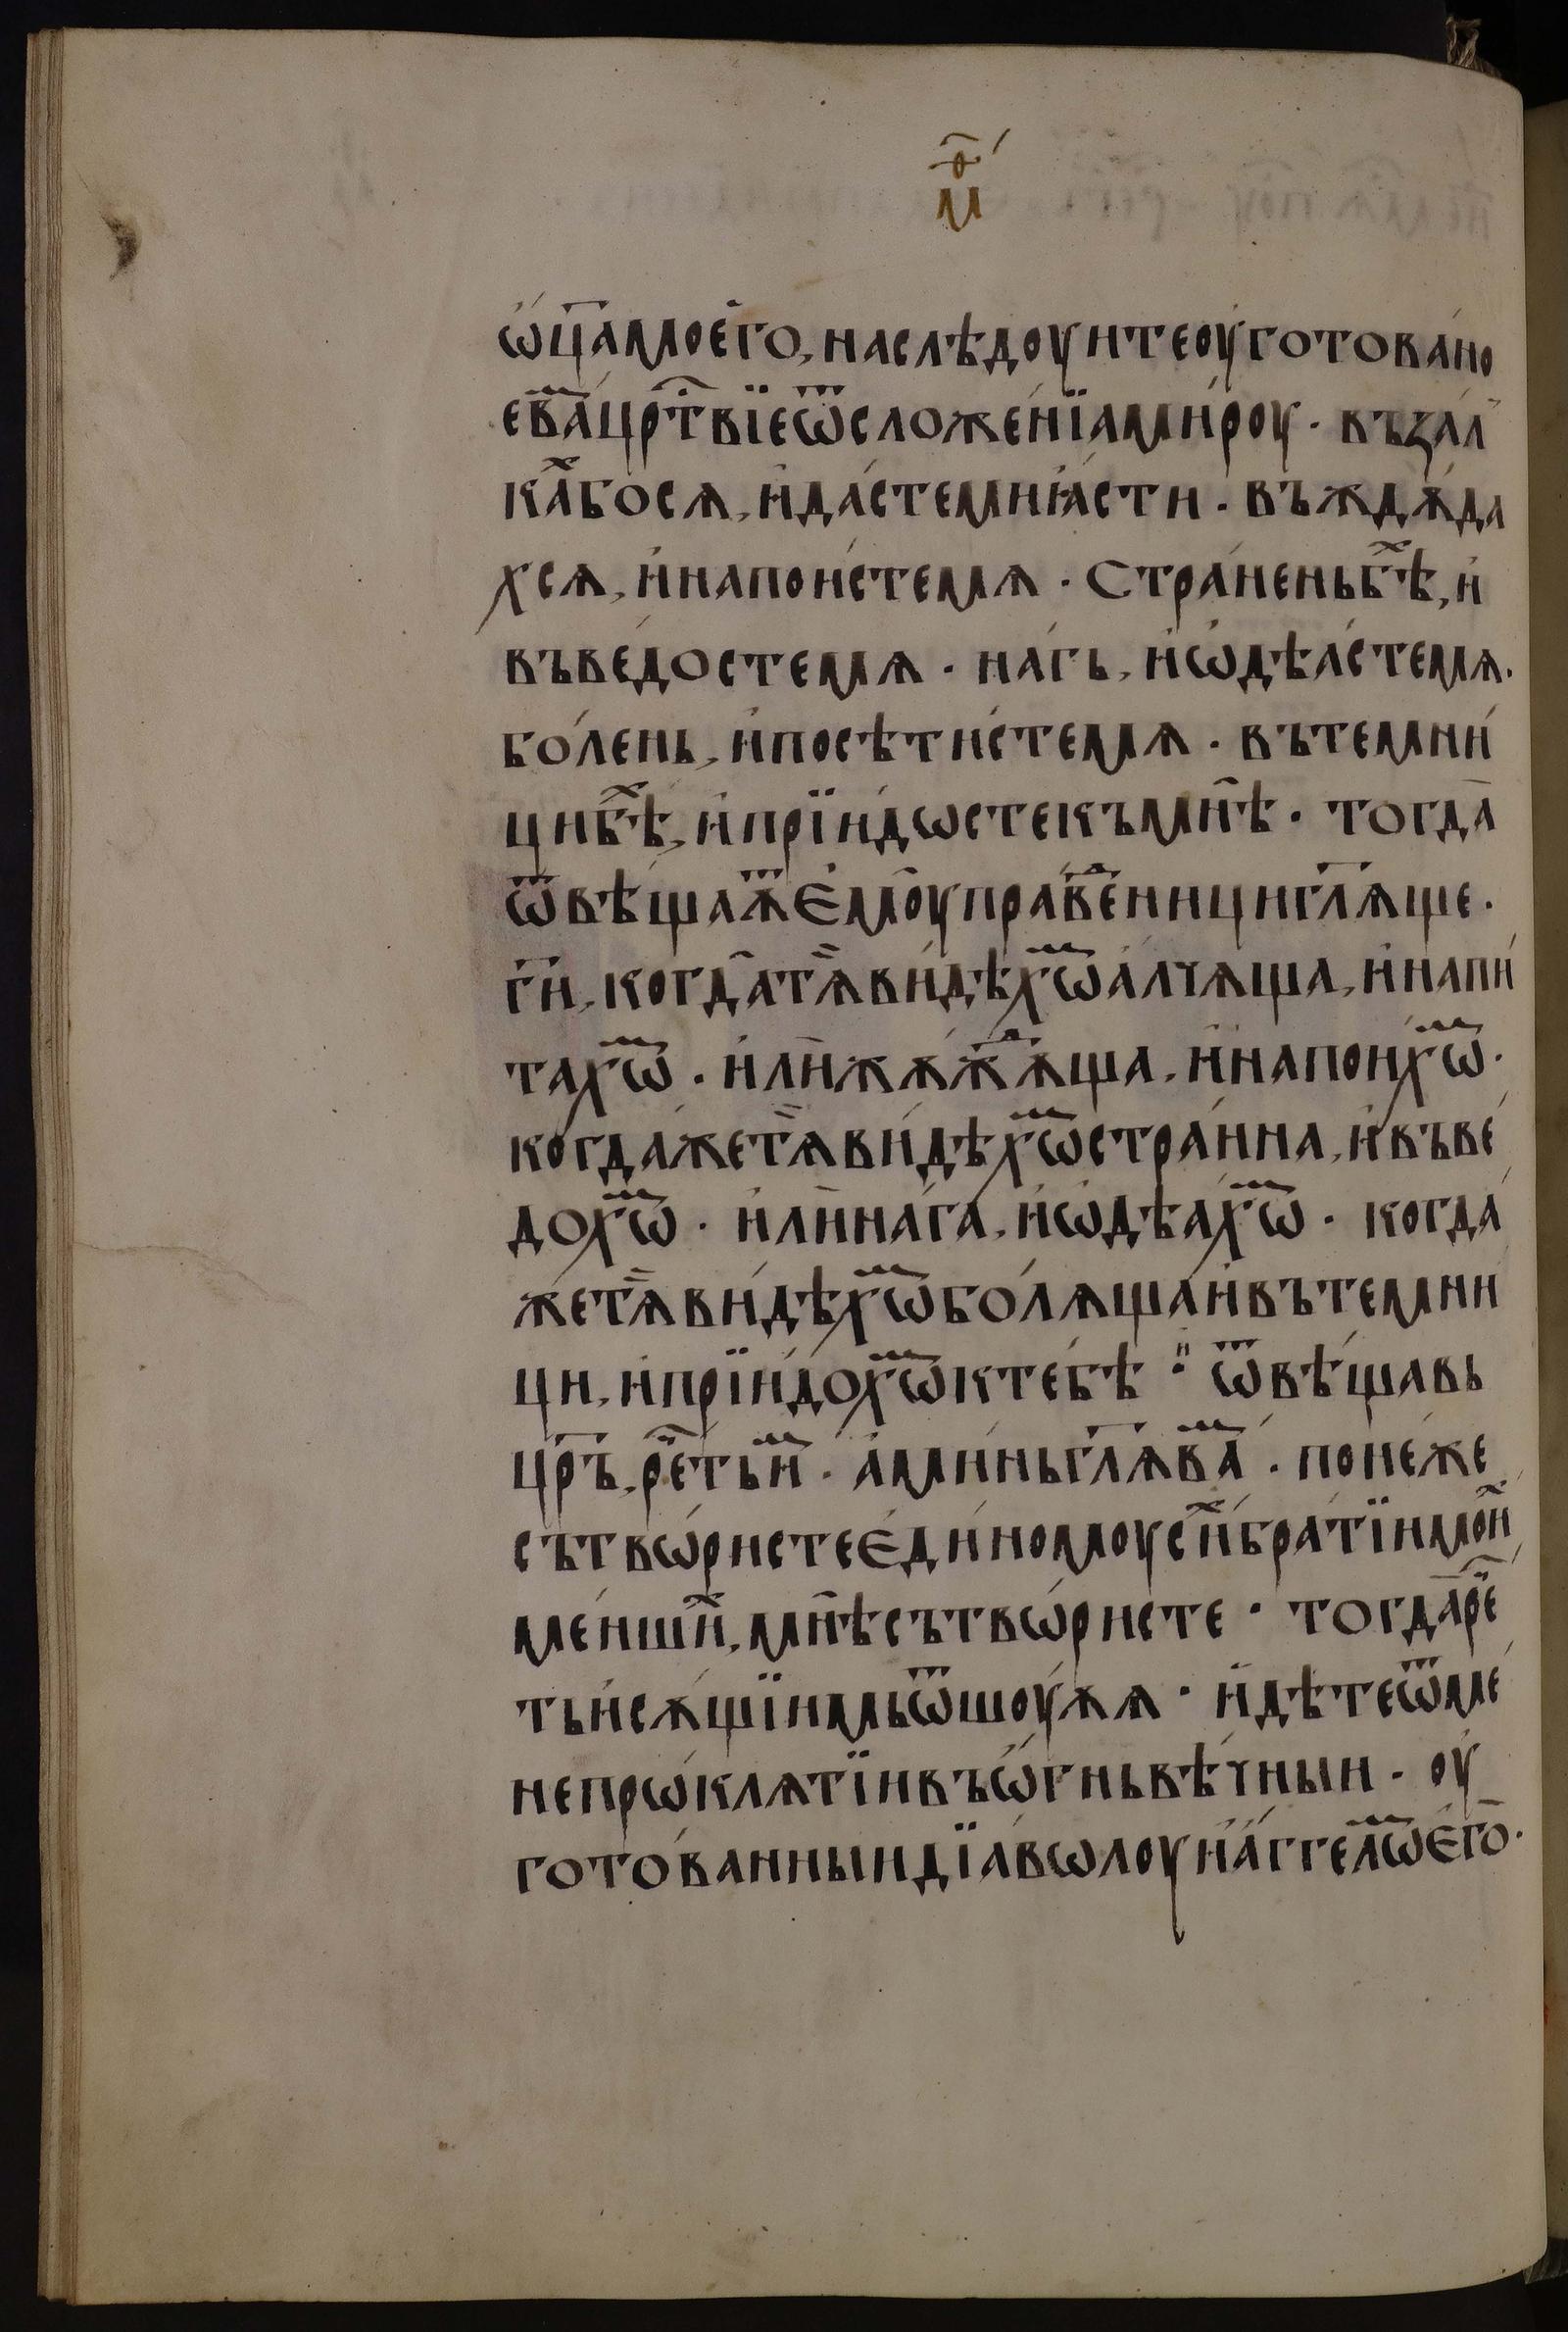 м҃ф
ѡ҆ц҃а моего̀, наслѣдоуите оуготовано
е ва̑ цр҃твїе ѿ сложе́нїа ми́роу · възал
ка̑ бо сѧ, и҆ да́сте ми ꙗ҆́сти · въждѧ́да
хсѧ, и҆ напои́сте мѧ · Стра́нень бѣ̑, и҆
въведо́сте мѧ · на́гь, и҆ ѡ҆дѣ́асте мѧ ·
бо́лень, и҆ посѣти́сте мѧ · въ темни́
ци бѣ̑, и҆ прїи́дѡсте къ мн҄ѣ · тогда̀
ѿвѣщаѫ̑ Є҆моу праве́дници гл҃ѧще ·
г҃и, когда̀ тѧ̀ ви́дѣхѡⷨ а҆́лчѧща, и҆ напи́
тахѡⷨ · и҆лѝ жѧ́жⷣѧ́ща, и҆ напои́хѡⷨ ·
когда́же тѧ̀ ви́дѣхѡⷨ стра́нна, и҆ въве́
дохѡⷨ · и҆лѝ на́га, и҆ ѡ҆дѣа́хѡⷨ · когда́
же тѧ̀ ви́дѣхѡⷨ бо́лѧща и҆ въ темни
ци, и҆ прїи́дохѡⷨ к тебѣ̀ · ѿвѣ́щавь
цр҃ъ, рⷱ҇еть иⷨ · а҆ми́нь гл҃ѧ ваⷨ · поне́же
сътвѡ́ристе Є҆ди́номоу сиⷯ бра́тїи моиⷯ
ме́ншиⷯ, мн҄ѣ сътвѡ́ристе · тогда̀ рⷱ҇е
ть и҆ сѫ́щїимь ѿ шоу́ѫѧ · и҆дѣ́те ѿ ме
не прѡ́клѧтїи въ ѡ҆́гнь вѣ́чныи · оу҆
гото́ванныи дїа́вѡлоу и҆ а҆́ггелѡⷨ є҆го̀ ·